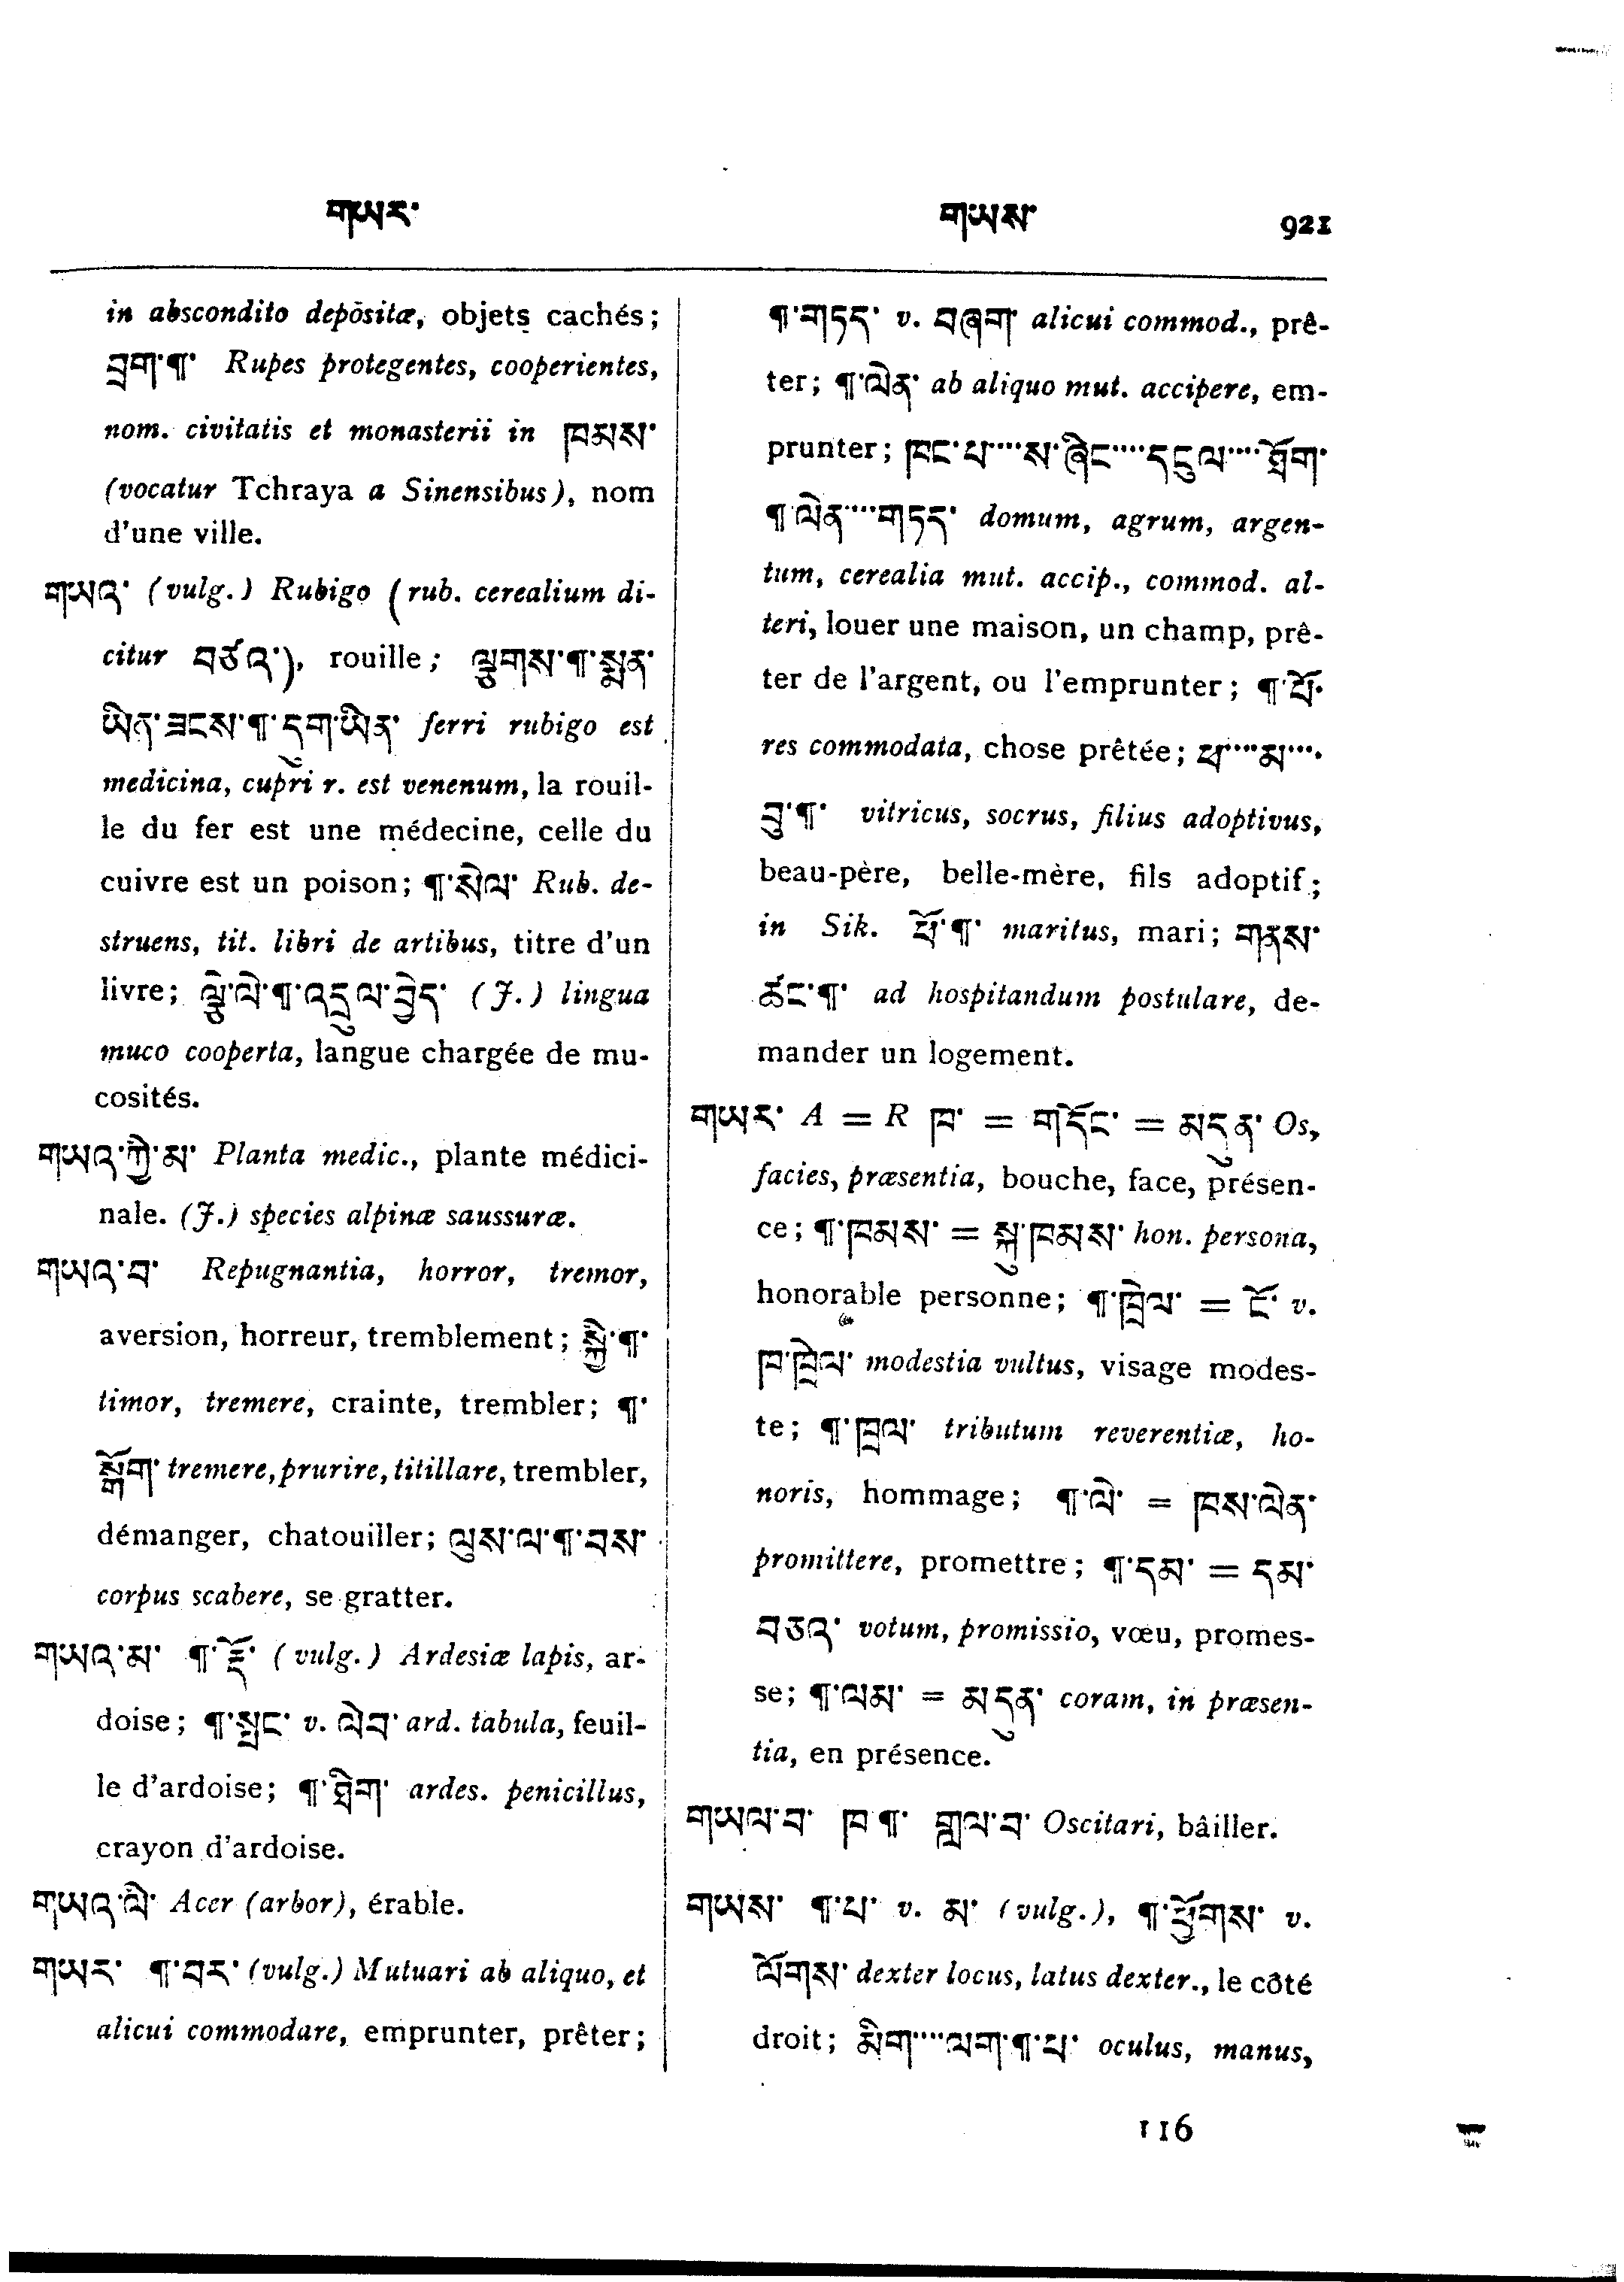 གཡར་
གཡས་
921
in abscondito depositæ, objets cachés;
བྲག་¶་ Rupes protegentes, cooperientes,
nom. civitatis et monasterii in ཁམས་
(vocatur Tchraya a Sinensibus), nom
d'une ville.
གཡའ་ (vulg.) Rubigo (rub. cerealium di-
citur བཙའ་), rouille; ལྕགས་¶་སྨན་
ཡིན་ ཟངས་¶་དུག་ཡིན་ ferri rubigo est
medicina, cupri r. est venenum, la rouil-
le du fer est une médecine, celle du
cuivre est un poison; ¶་སེལ་ Rub. de-
struens, tit. libri de artibus, titre d'un
livre; ལྕེ་ལེ་¶་འདྲུལ་བྱེད་ (J.) lingua
muco cooperta, langue chargée de mu-
cosités.
གཡའ་ཀྱི་མ་ Planta medic., plante médici-
nale. (J.) species alpinæ saussuræ.
གཡའ་བ་ Repugnantia, horror, tremor,
aversion, horreur, tremblement; སྐྱི་¶་
timor, tremere, crainte, trembler; ¶་
སློག་ tremere, prurire, titillare, trembler,
démanger, chatouiller; ལུས་ལ་¶་བས་
corpus scabere, se gratter.
གཡའ་མ་ ¶་རྡོ་ (vulg.) Ardesiæ lapis, ar-
doise; ¶་སྤང་ v. ལེབ་ ard. tabula, feuil-
le d'ardoise; ¶་ཐིག་ ardes. penicillus,
crayon d'ardoise.
གཡའ་ལི་ Acer (arbor), érable.
གཡར་ ¶་བར་ (vulg.) Mutuari ab aliquo, et
alicui commodare, emprunter, prêter;
¶་གཏད་ v. བཞག་ alicui commod., prê-
ter; ¶་ལེན་ ab aliquo mut. accipere, em-
prunter; ཁང་པ་····ས་ཞིང་····དངུལ་····ཐོག་
¶་ལེན་····གཏད་ domum, agrum, argen-
tum, cerealia mut. accip., commod. al-
teri, louer une maison, un champ, prê-
ter de l'argent, ou l'emprunter; ¶་པོ་
res commodata, chose prêtée; ཕ་····མ་····
བུ་¶་ vitricus, socrus, filius adoptivus,
beau-père, belle-mère, fils adoptif;
in Sik. ཕོ་¶་ maritus, mari; གནས་
ཚང་¶་ ad hospitandum postulare, de-
mander un logement.
གཡར་ A = R ཁ་ = གདོང་ = མདུན་ Os,
facies, præsentia, bouche, face, présen-
ce; ¶་ཁམས་ = སྐུ་ཁམས་ hon. persona,
honorable personne; ¶་ཁྲེལ་ = ངོ་ v.
ཁ་ཁྲེལ་ modestia vultus, visage modes-
te; ¶་ཁྲལ་ tributum reverentiæ, ho-
noris, hommage; ¶་ལེ་ = ཁས་ལེན་
promittere, promettre; ¶་དམ་ = དམ་
བཅའ་ votum, promissio, vœu, promes-
se; ¶་ལམ་ = མདུན་ coram, in præsen-
tia, en présence.
གཡལ་བ་ ཁ་¶་ གླལ་བ་ Oscitari, bâiller.
གཡས་ ¶་པ་ v. མ་ (vulg.), ¶་ཕྱོགས་ v.
ལོགས་ dexter locus, latus dexter., le côté
droit; མིག་····ལག་¶་པ་ oculus, manus,
116